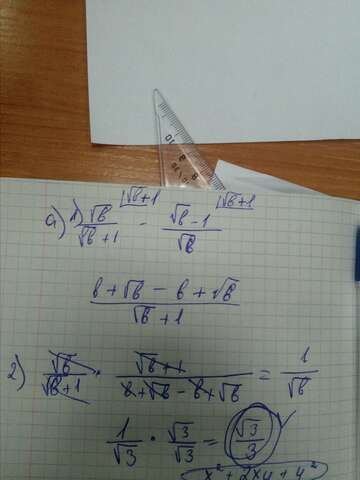 а) 1) √b / (√b + 1) - (√b - 1) / √b |√b+1 |√b+1
(b + √b - b + √b) / (√b + 1)
2) √b / (√b + 1) · (√b + 1) / (b + √b - b + √b) = 1 / √b
1 / √3 · √3 / √3 = √3 / 3
x² + 2xy + y²